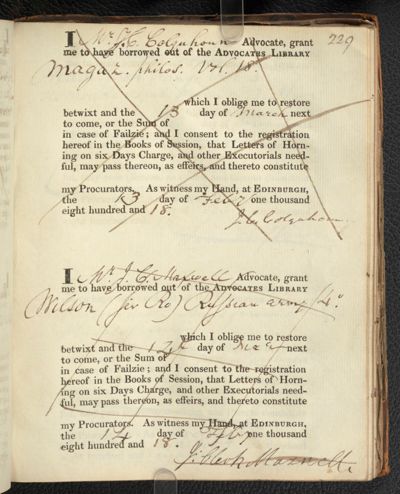 229
I Mr J. C. Colquhoun Advocate, grant
me to have borrowed out of the ADVOCATES LIBRARY
Magaz. philos. Vol. 18.
which I oblige me to restore
betwixt and the 13 day of March next
to come, or the Sum of
in case of Failzie; and I consent to the registration
hereof in the Books of Session, that Letters of Horn-
ing on six Days Charge, and other Executorials need-
ful, may pass thereon, as effeirs, and thereto constitute
my Procurators. As witness my Hand, at EDINBURGH,
the 13 day of Feby one thousand
eight hundred and 18.
J. C. Colquhoun
I Mr J. C. Maxwell Advocate, grant
me to have borrowed out of the ADVOCATES LIBRARY
Wilson (Sir Ro) Russian army 4o.
which I oblige me to restore
betwixt and the 14 day of Mar next
to come, or the Sum of
in case of Failzie; and I consent to the registration
hereof in the Books of Session, that Letters of Horn-
ing on six Days Charge, and other Executorials need-
ful, may pass thereon, as effeirs, and thereto constitute
my Procurators. As witness my Hand, at EDINBURGH,
the 14 day of Feby one thousand
eight hundred and 18.
J. Clerk Maxwell